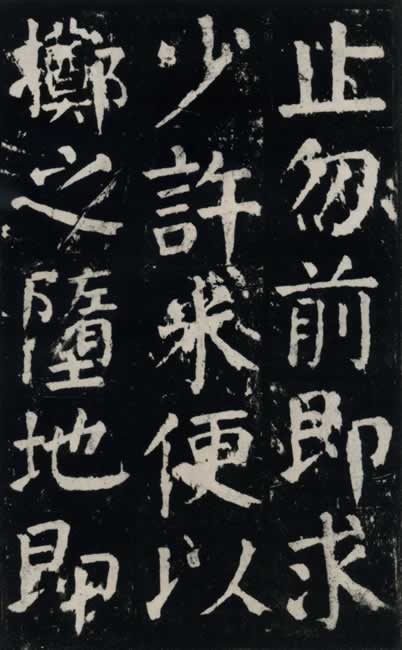 止勿前即求
少許米便以
擲之墮地即